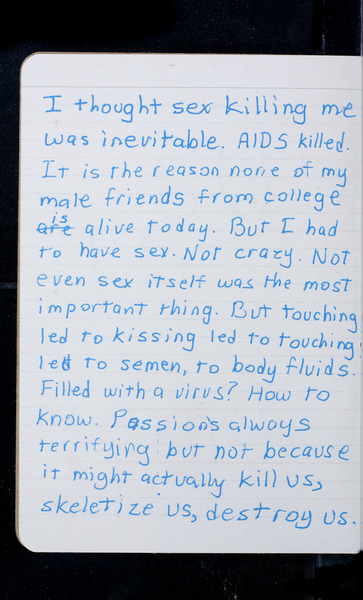 I thought sex killing me
was inevitable. AIDS killed.
It is the reason none of my
male friends from college
are is alive today. But I had
to have sex. Not crazy. Not
even sex itself was the most
important thing. But touching
led to kissing led to touching
led to semen, to body fluids.
Filled with a virus? How to
know. Passions always
terrifying but not because
it might actually kill us,
skeletize us, destroy us.